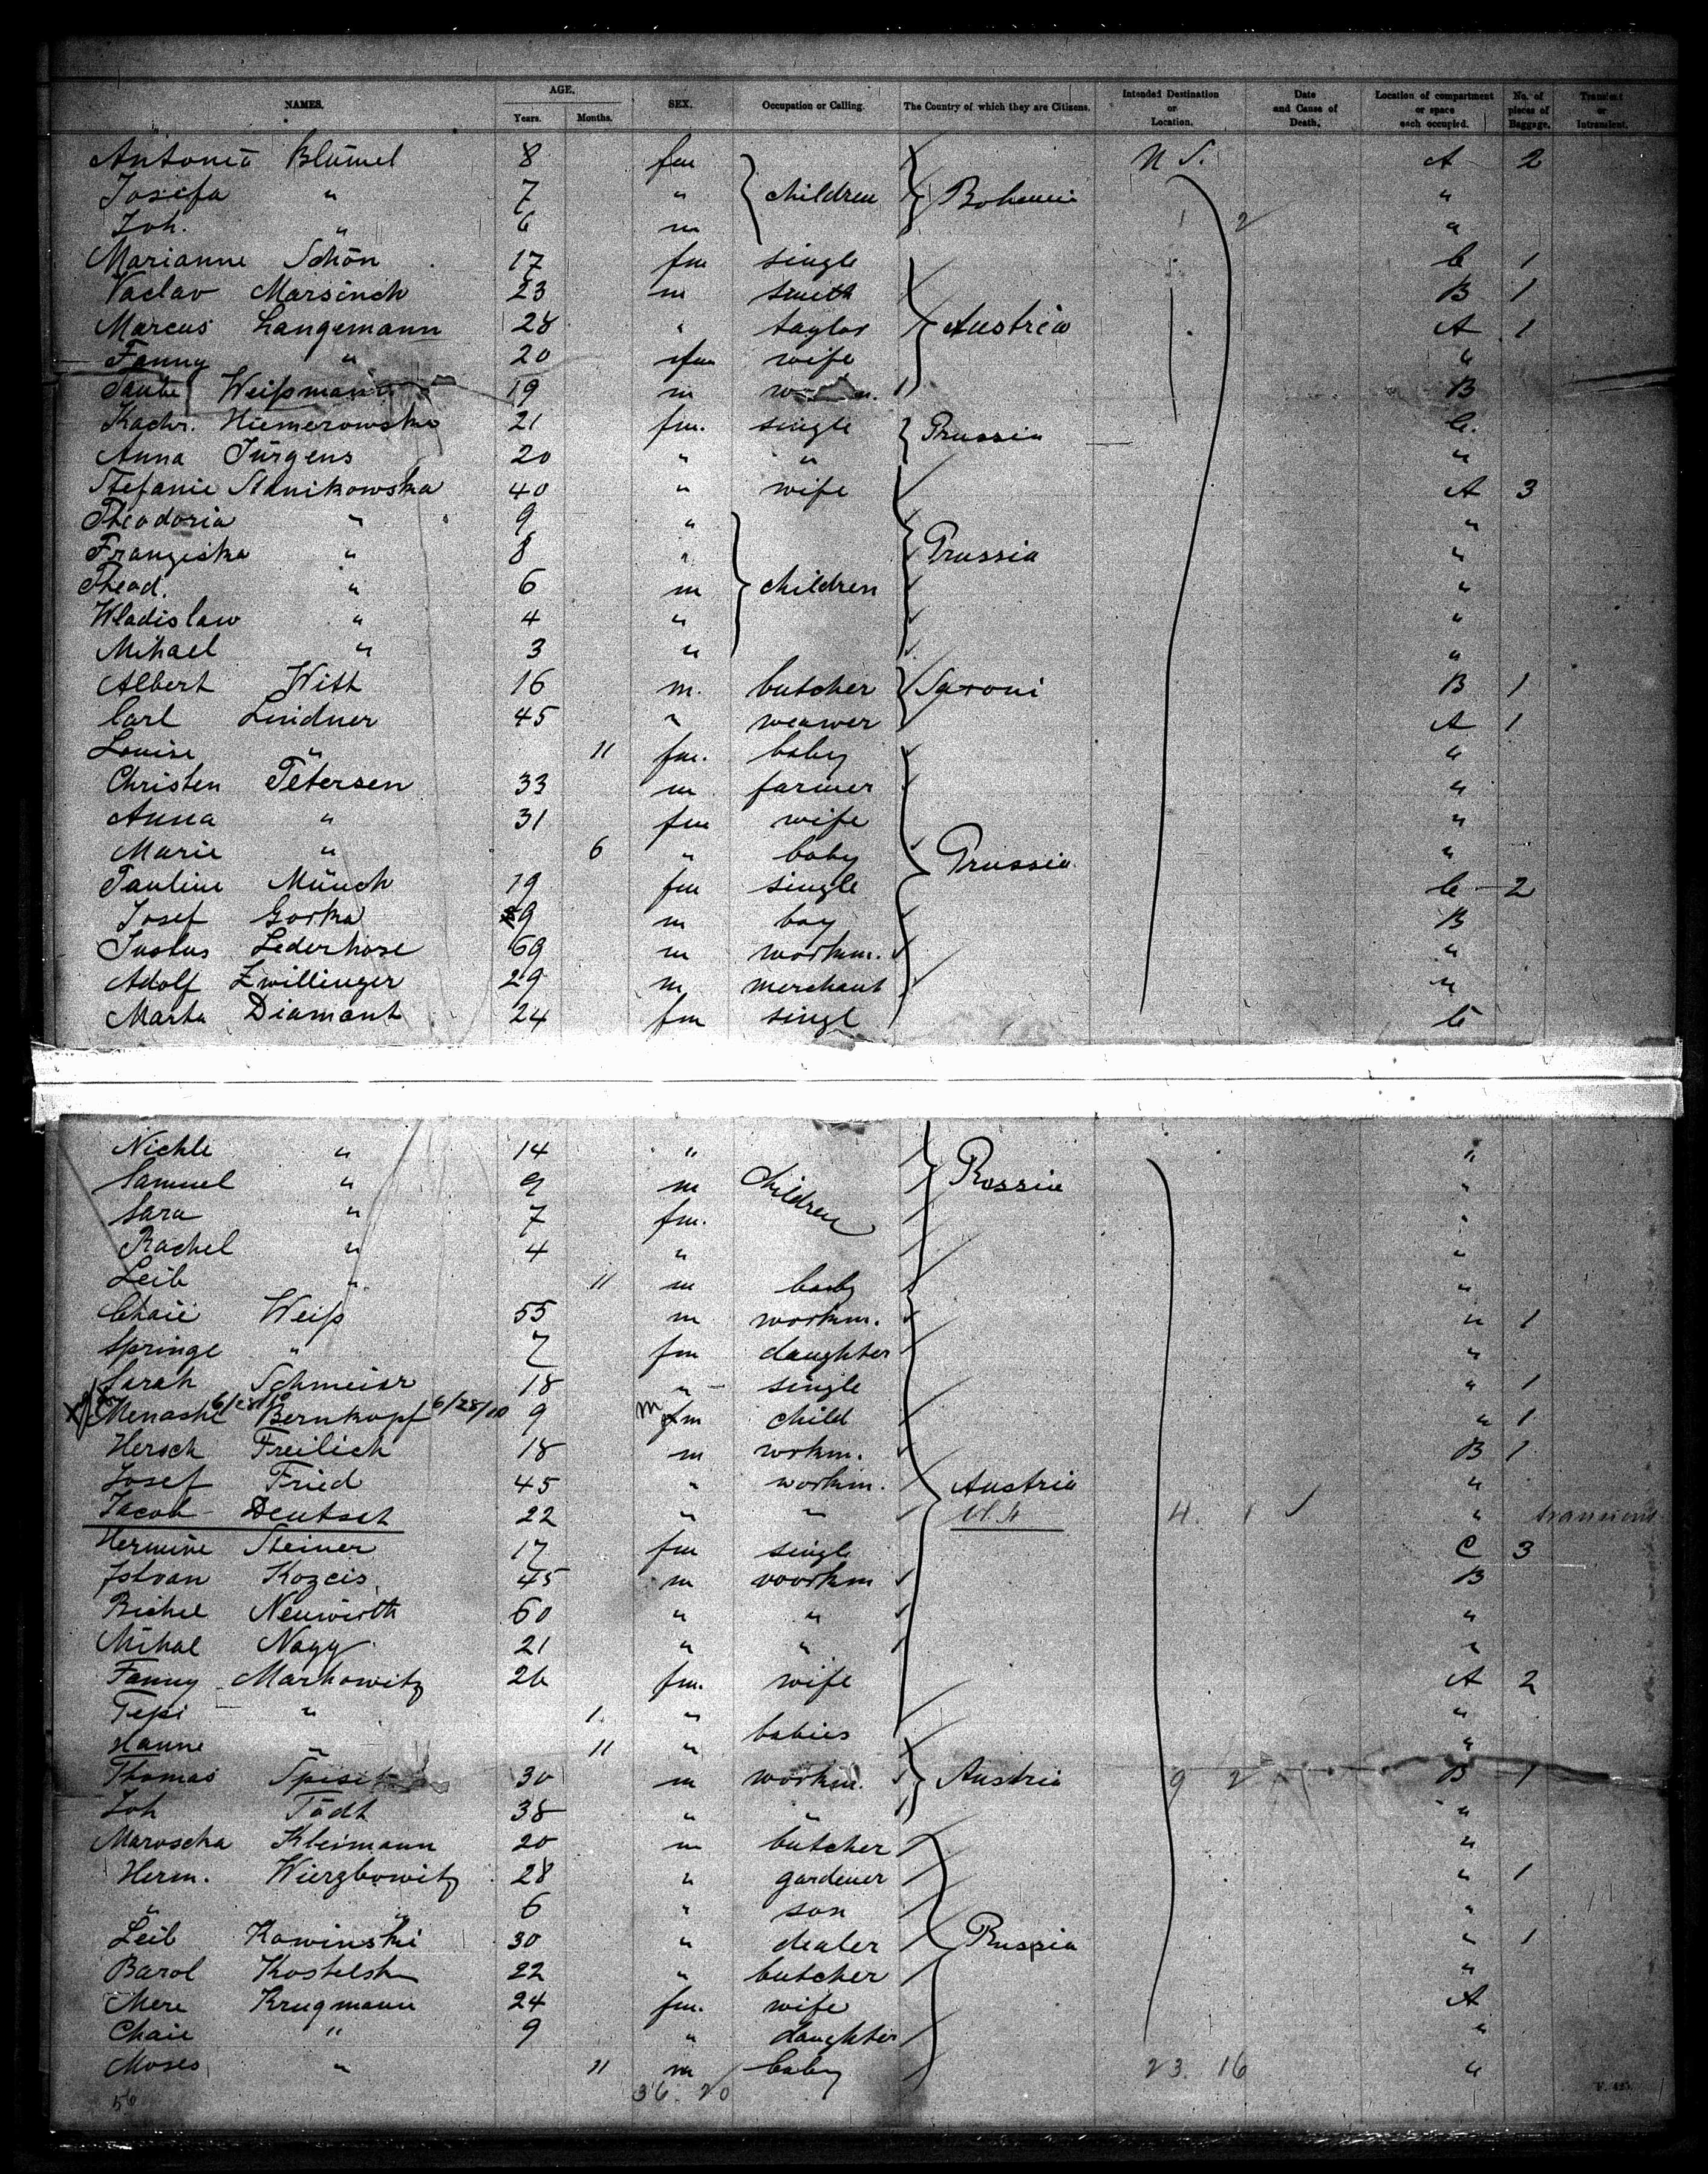 NAMES. AGE. Years. Months. SEX. Occupation or Calling. The Country of which they are Citizens. Intended Destination or Location. Date and Cause of Death. Location of compartment or space each occupied. No. of pieces of Baggage. Transient or Intransient.
Antonia Blümel 8 fm N S. A 2
Josefa " 7 " children Bohemia "
Joh. " 6 m "
Marianne Schön 17 fm single C 1
Vaclav 23 m smith B 1
Marcus Langemann 28 " taylor Austria A 1
Fanny " 20 fm wife "
Taube Weißmann 19 m B
Kathr. 21 fm. single Prussia C.
Anna Jürgens 20 " " "
Stefanie 40 " wife A 3
Theodoria " 9 " "
Franziska " 8 " Prussia "
Thead. " 6 m children "
Wladislaw " 4 " "
Mihael " 3 " "
Albert Witt 16 m. butcher Saxoni B 1
Carl Lindner 45 " weawer A 1
Louise " 11 fm. baby "
Christen Petersen 33 m farmer "
Anna " 31 fm wife "
Marie " 6 " baby Prussia "
Pauline Münch 19 fm single C 2
Josef Gorka 9 m boy B
Justus Lederhose 69 m workm. "
Adolf Zwillinger 29 m merchant "
Marta Diamant 24 fm singl C
Nichle " 14 " Russia "
Samuel " 9 m children "
Sara " 7 fm. "
Rachel " 4 " "
Leib " 11 m baby "
Chaie Weiß 55 m workm. " 1
Springe " 7 fm daughter "
Sarah Schmeier 18 " single " 1
Menashe Bernkopf 6/28/00 9 m fm child " 1
Hersch Freilich 18 m wrkm. B 1
Josef Fried 45 " workm. Austria "
Jacob Deutsch 22 " " 4. 1 "
Hermine Steiner 17 fm single C 3
Istvan 45 m woorkm B
Bichel Neuwirth 60 " " "
Mihal Nagy 21 " " "
Fanny Markowitz 26 fm. wife A 2
Pepi " 1. " babies "
Hanne " 11 " "
Thomas 30 m workm. Austria 9 2 B 1
Joh Tödt 38 " " "
Maroscha Kleimann 20 m butcher "
Herm. Wierzbowitz 28 " gardener " 1
" " 6 " son "
Leib Kowinski 30 " dealer Russia " 1
Barol 22 " butcher "
Mere Krugmann 24 fm. wife A
Chaie " 9 " daughter "
Moses " 11 m baby 23. 16 "
56 36. 20